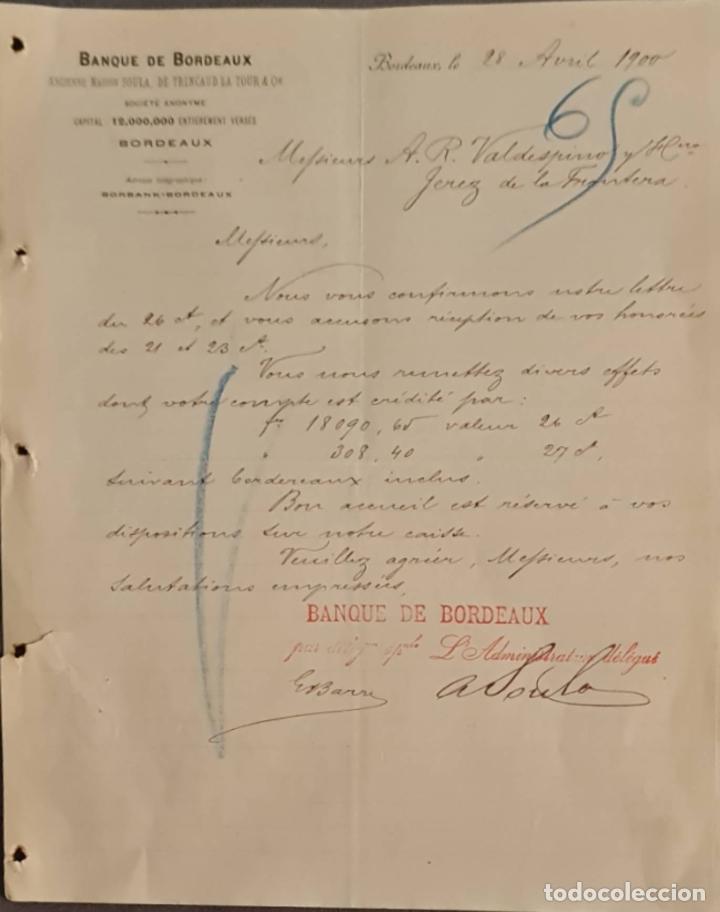 BANQUE DE BORDEAUX
ANCIENNE MAISON SOULA, DE TRINCAUD LA TOUR & Cie
SOCIÉTÉ ANONYME
CAPITAL : 12,000,000 ENTIÈREMENT VERSÉS
BORDEAUX
Adresse télégraphique :
BORBANK-BORDEAUX
Bordeaux, le 28 Avril 1900
65
Messieurs A. R. Valdespino y Hno
Jerez de la Frontera.
Messieurs,
Nous vous confirmons notre lettre
du 26 Ct, et vous accusons réception de vos honorées
des 21 et 23 Ct.
Vous nous remettez divers effets
dont votre compte est crédité par :
fr 18090,65 valeur 26 Ct
" 308,40 " 27 Ct,
suivant bordereaux inclus.
Bon accueil est réservé à vos
dispositions sur notre caisse.
Veuillez agréer, Messieurs, nos
salutations empressées,
BANQUE DE BORDEAUX
par L'Administrateur délégué
E Barre A Soula
todocoleccion